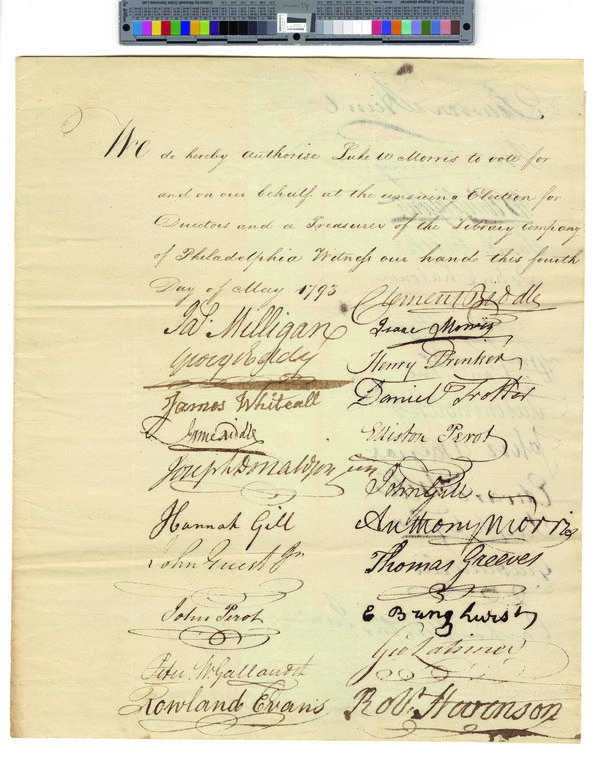 We do hereby authorise Luke W Morris to vote for
and on our behalf at the ensuing Election for
Directors and a Treasurer of the Library Company
of Philadelphia Witness our hand this fourth
Day of May 1793
Clement Biddle
Jas. Milligan
Isaac Morris
George Eddy
Henry Drinker
James Whiteall
Daniel Trotter
James Biddle
Elliston Perot
Joseph Donaldson jun
John Gill
Hannah Gill
Anthony Morris
John Guest Jr
Thomas Greeves
John Perot
E Bringhurst
Geo Latimer
Peter W. Gallaudet
Rowland Evans
Robt. Stevenson